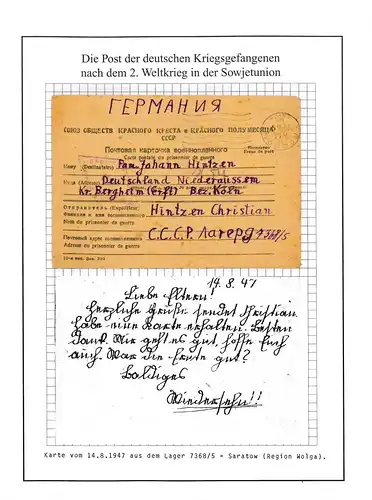 Die Post der deutschen Kriegsgefangenen
nach dem 2. Weltkrieg in der Sowjetunion
ГЕРМАНИЯ
СОЮЗ ОБЩЕСТВ КРАСНОГО КРЕСТА и КРАСНОГО ПОЛУМЕСЯЦА
СССР
Почтовая карточка военнопленного
Carte postale du prisonnier de guerre
Franc de port
Кому (Destinataire) Fam. Johann Hintzen
Куда Deutschland Niederaussem
Kr. Bergheim (Erft) Bez. Köln
Отправитель (Expéditeur)
Фамилия и имя военнопленного Hintzen Christian
Nom du prisonnier de guerre
Почтовый адрес военнопленного С.С.С.Р. Лагерь 7368/5
Adresse du prisonnier de guerre
14.8.47
Liebe Eltern!
Herzliche Grüße sendet Christian.
Habe eine Karte erhalten. Besten
Dank. Mir geht es gut, hoffe Euch
auch. War die Ernte gut?
Baldiges
Wiedersehn!!
Karte vom 14.8.1947 aus dem Lager 7368/5 = Saratow (Region Wolga).